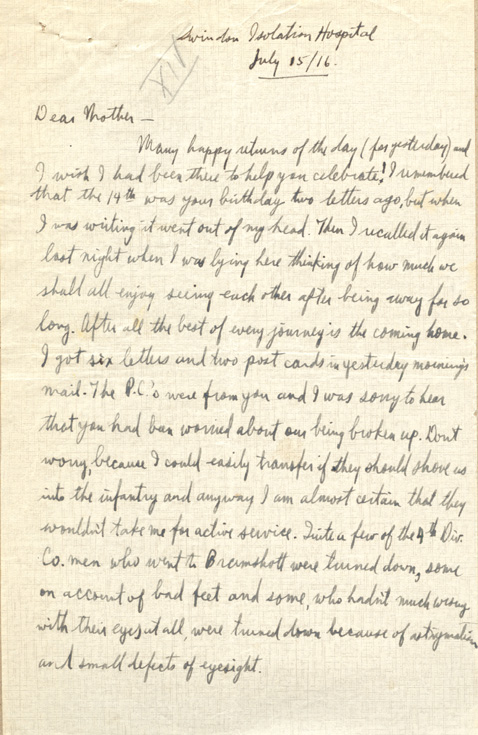 Swindon Isolation Hospital
July 15/16.
XIV
Dear Mother —
Many happy returns of the day (for yesterday) and
I wish I had been there to help you celebrate! I remembered
that the 14th was your birthday two letters ago, but when
I was writing it went out of my head. Then I recalled it again
last night when I was lying here thinking of how much we
shall all enjoy seeing each other after being away for so
long. After all the best of every journey is the coming home.
I got six letters and two post cards in yesterday morning's
mail. The P.C.'s were from you and I was sorry to hear
that you had been worried about our being broken up. Dont
worry, because I could easily transfer if they should shove us
into the infantry and anyway I am almost certain that they
wouldn't take me for active service. Quite a few of the 4th Div.
Co. men who went to Bramshott were turned down, some
on account of bad feet and some, who hadn't much wrong
with their eyes at all, were turned down because of astigmatism
and small defects of eyesight.